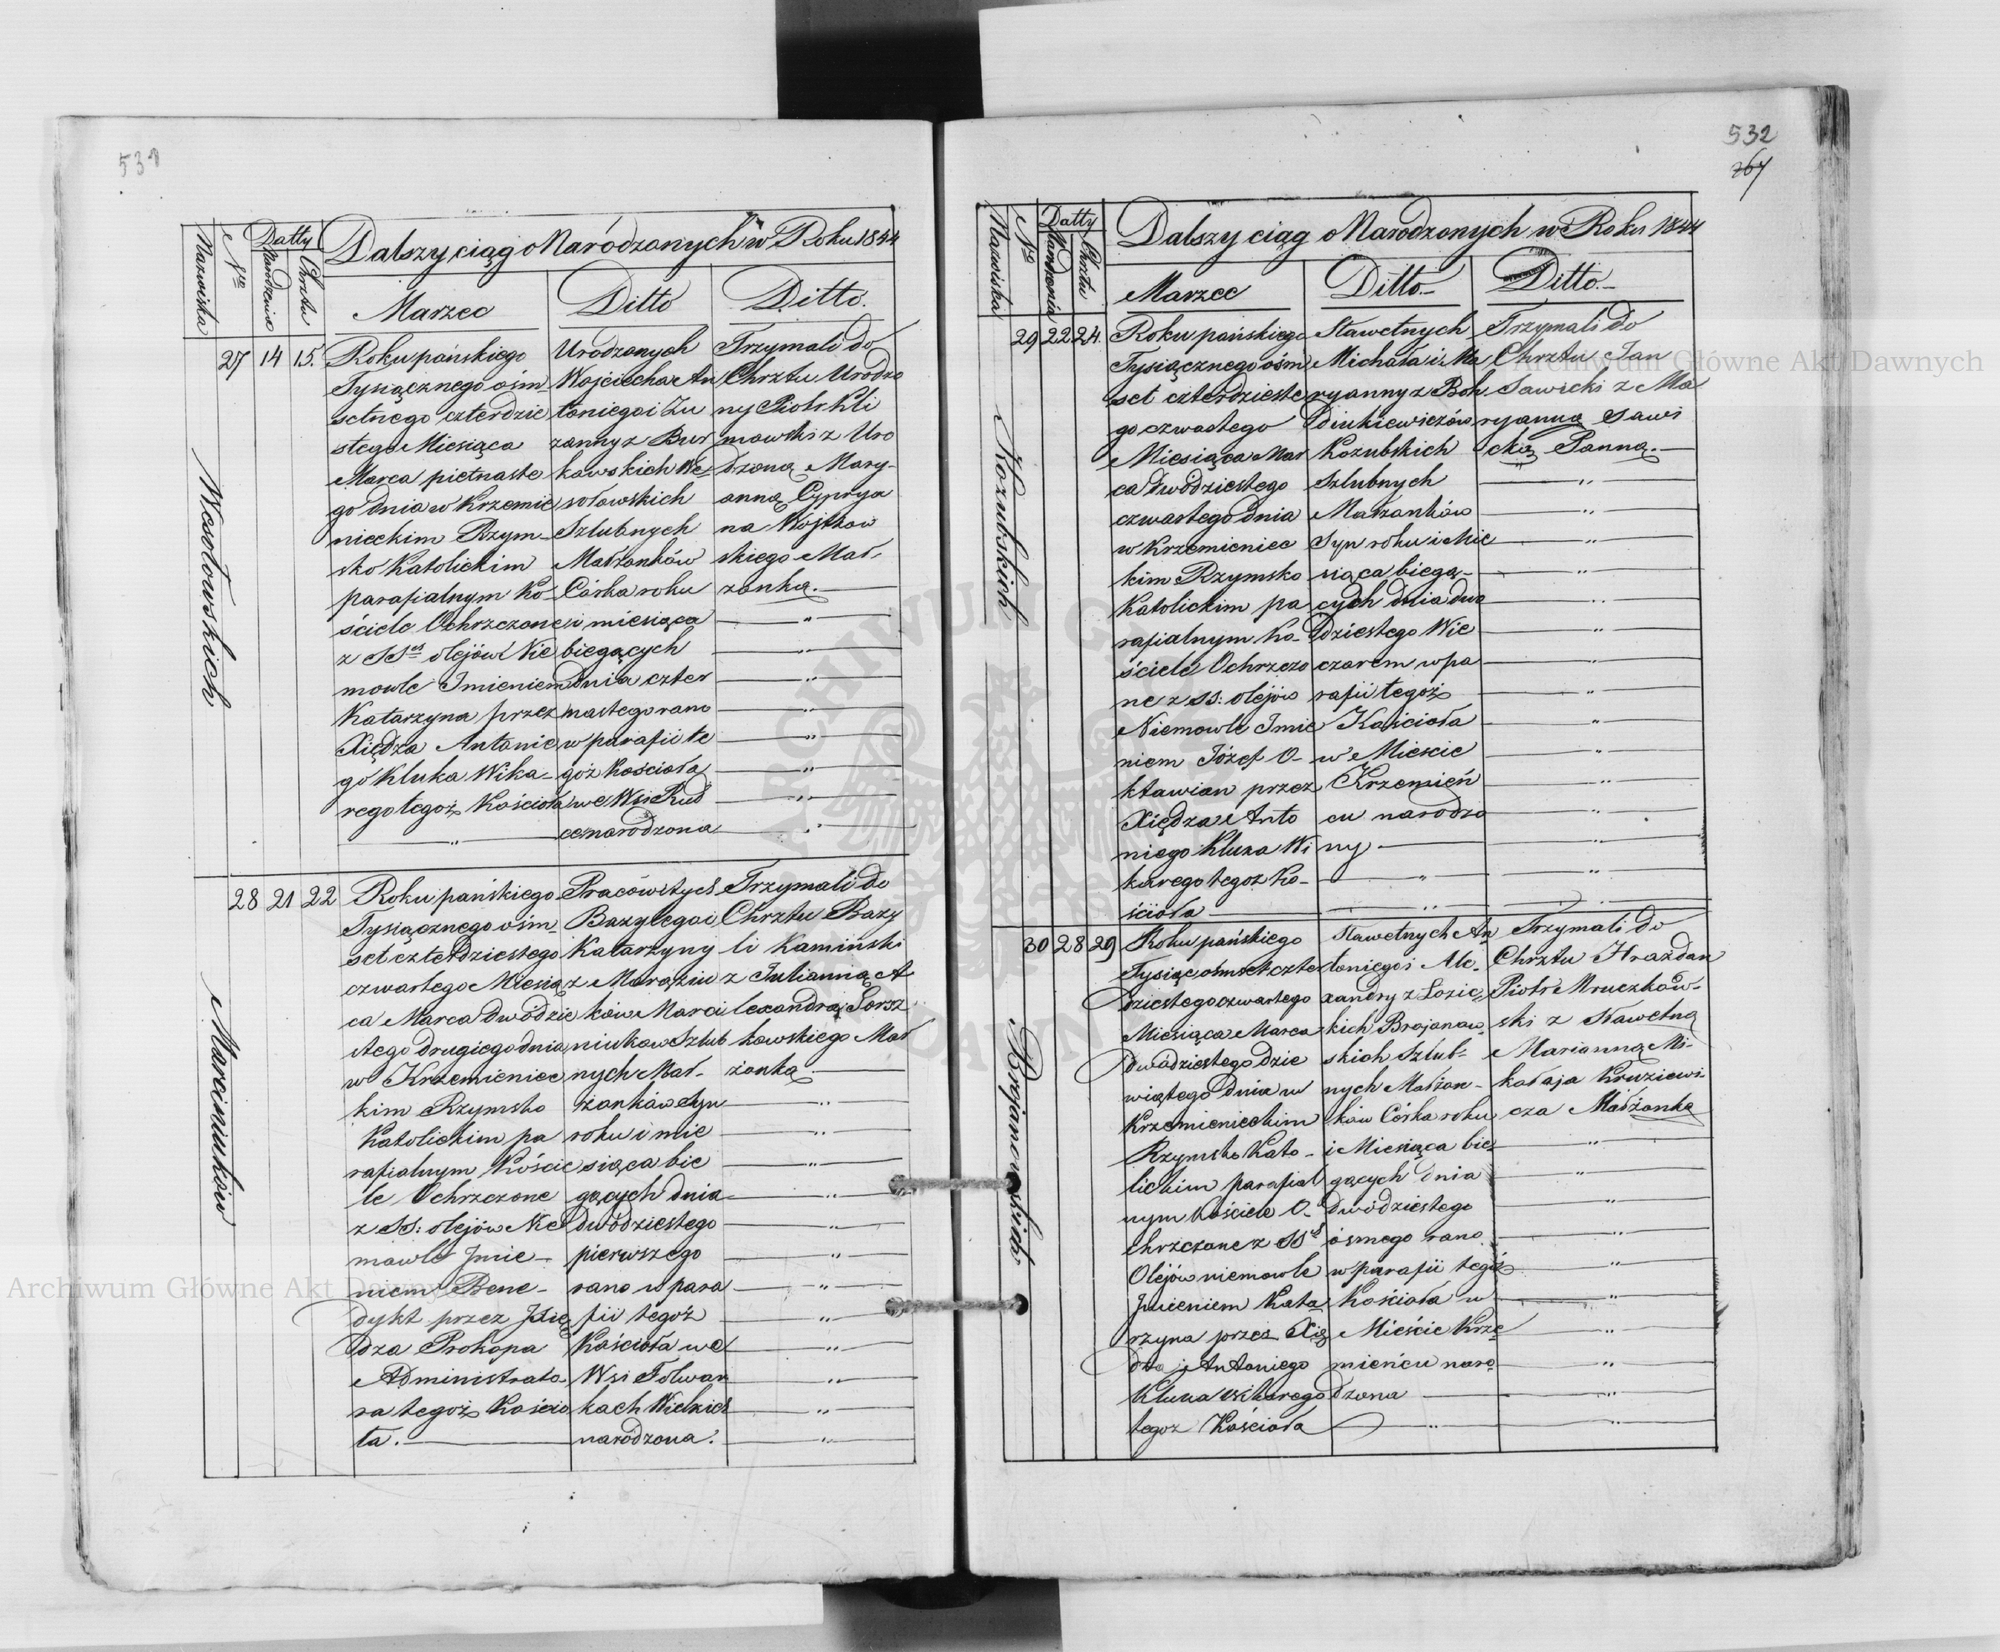 531
Dalszy ciąg o Narodzonych w Roku 1844
Nazwiska
Nro
Datty
Narodzenia
Chrztu
Marzec
Ditto
Ditto.
27 14 15.
Wesołowskich
Roku pańskiego
Tysiącznego óśm
setnego czterdzie
stego Miesiąca
Marca pietnaste
go dnia w Krzemie
nieckim Rzym-
sko Katolickim
parafialnym Ko
ściele Ochrzczone
z SStch olejów Nie
mowle Imieniem
Katarzyna przez
Xiędza Antonie
go Kluka Wika-
rego tegoż Kościoła
Urodzonych
Wojciecha An
toniego i Zu
zanny z Bur
kowskich We-
sołowskich
Szlubnych
Małżonków
Córka roku
i miesiąca
biegących
Dnia czter
nastego rano
w parafii te
goż Kościoła
we Wsi Rud
ce narodzona
Trzymali do
Chrztu Urodzo
ny Piotr Kli
mowski z Uro
dzoną Mary-
anną Cypryа
na Wojtkow
skiego Mał-
żonką.
28 21 22
Marciniuków
Roku pańskiego
Tysiącznego óśm-
set czterdziestego
czwartego Miesią
ca Marca dwódzie
stego drugiego dnia
w Krzemieniec
kim Rzymsko
Katolickim pa
rafialnym Koście
le Ochrzczone
z SS: olejów Nie
mowle Jmie-
niem Bene-
dykt przez Xię
dza Prokopa
Administrato-
ra tegoż Kościo
ła.
Pracówitych
Bazylego i
Katarzyny
z Maraziu
ków Marci
niuków Szlub
nych Mał-
żonków Syn
roku i mie
siąca bie
gących dnia
dwódziestego
pierwszego
rano w para
fii tegoż
Kościoła we
Wsi Folwar
kach Wielkich
narodzona.
Trzymali do
Chrztu Bazy
li Kamiński
z Julianną A
lexandra
kowskiego Mał
żonką.
532
267
Dalszy ciąg o Narodzonych w Roku 1844
Nazwiska
Nro
Datty
Narodzenia
Chrztu
Marzec
Ditto
Ditto.
29 22 24.
Kozubskich
Roku pańskiego
Tysiącznego óśm
set czterdzieste
go czwartego
Miesiąca Mar
ca Dwódziestego
czwartego dnia
w Krzemieniec
kim Rzymsko
Katolickim pa
rafialnym Ko-
ściele Ochrzczo
ne z SS: olejów
Niemowle Jmie
niem Józef O-
ktawian przez
Xiędza Anto
niego Kluka Wi
karego tegoż Ko-
ścioła
Sławetnych
Michała i Ma
ryanny z Boh
dinkiewiczów
Kozubskich
Szlubnych
Małżonków
Syn roku i Mie
siąca biegą-
cych dnia dwo
dziestego Wie
czorem w pa
rafii tegoż
Kościoła
w Mieście
Krzemień
cu narodzo
ny
Trzymali do
Chrztu Jan
Sawicki z Ma
ryanną Sawi
cką Panną.
30 28 29
Brojanowskich
Roku pańskiego
Tysiąc ośmset czter
dziestego czwartego
Miesiąca Marca
dwódziestego dzie
wiątego Dnia w
Krzemienieckim
Rzymsko Kato-
lickim parafial
nym Kościele O-
chrzczone z SStch
Olejów niemowle
Jmieniem Kata
rzyna przez Xię
dza Antoniego
Kluka wikarego
tegoż Kościoła
Sławetnych An
toniego i Ale-
xandry z Łozic-
kich Brojanow-
skich Szlub-
nych Małżon-
ków Córka roku
i Miesiąca bie-
gących dnia
Dwódziestego
ósmego rano
w parafii tegoż
Kościoła w
Mieście Krze
mieńcu naro
dzona
Trzymali do
Chrztu Hrażdan
Piotr Mruczków-
ski z Sławetną
Marianną Mi-
kołaja Kruziewi-
cza Małżonką
Archiwum Główne Akt Dawnych
Archiwum Główne Akt Dawnych